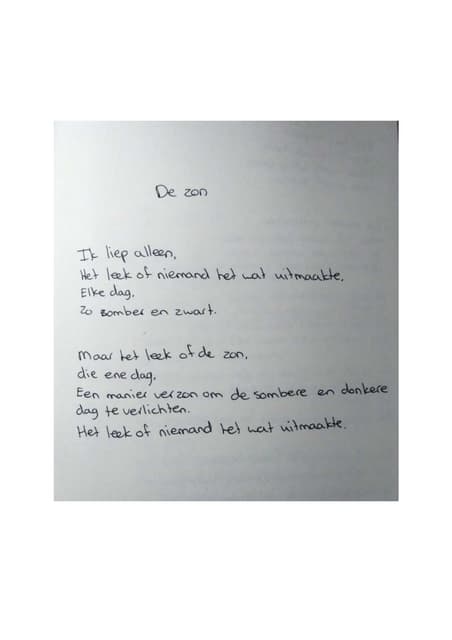 De zon
Ik liep alleen,
Het leek of niemand het wat uitmaakte.
Elke dag,
Zo somber en zwart.
Maar het leek of de zon,
die ene dag,
Een manier verzon om de sombere en donkere
dag te verlichten.
Het leek of niemand het wat uitmaakte.